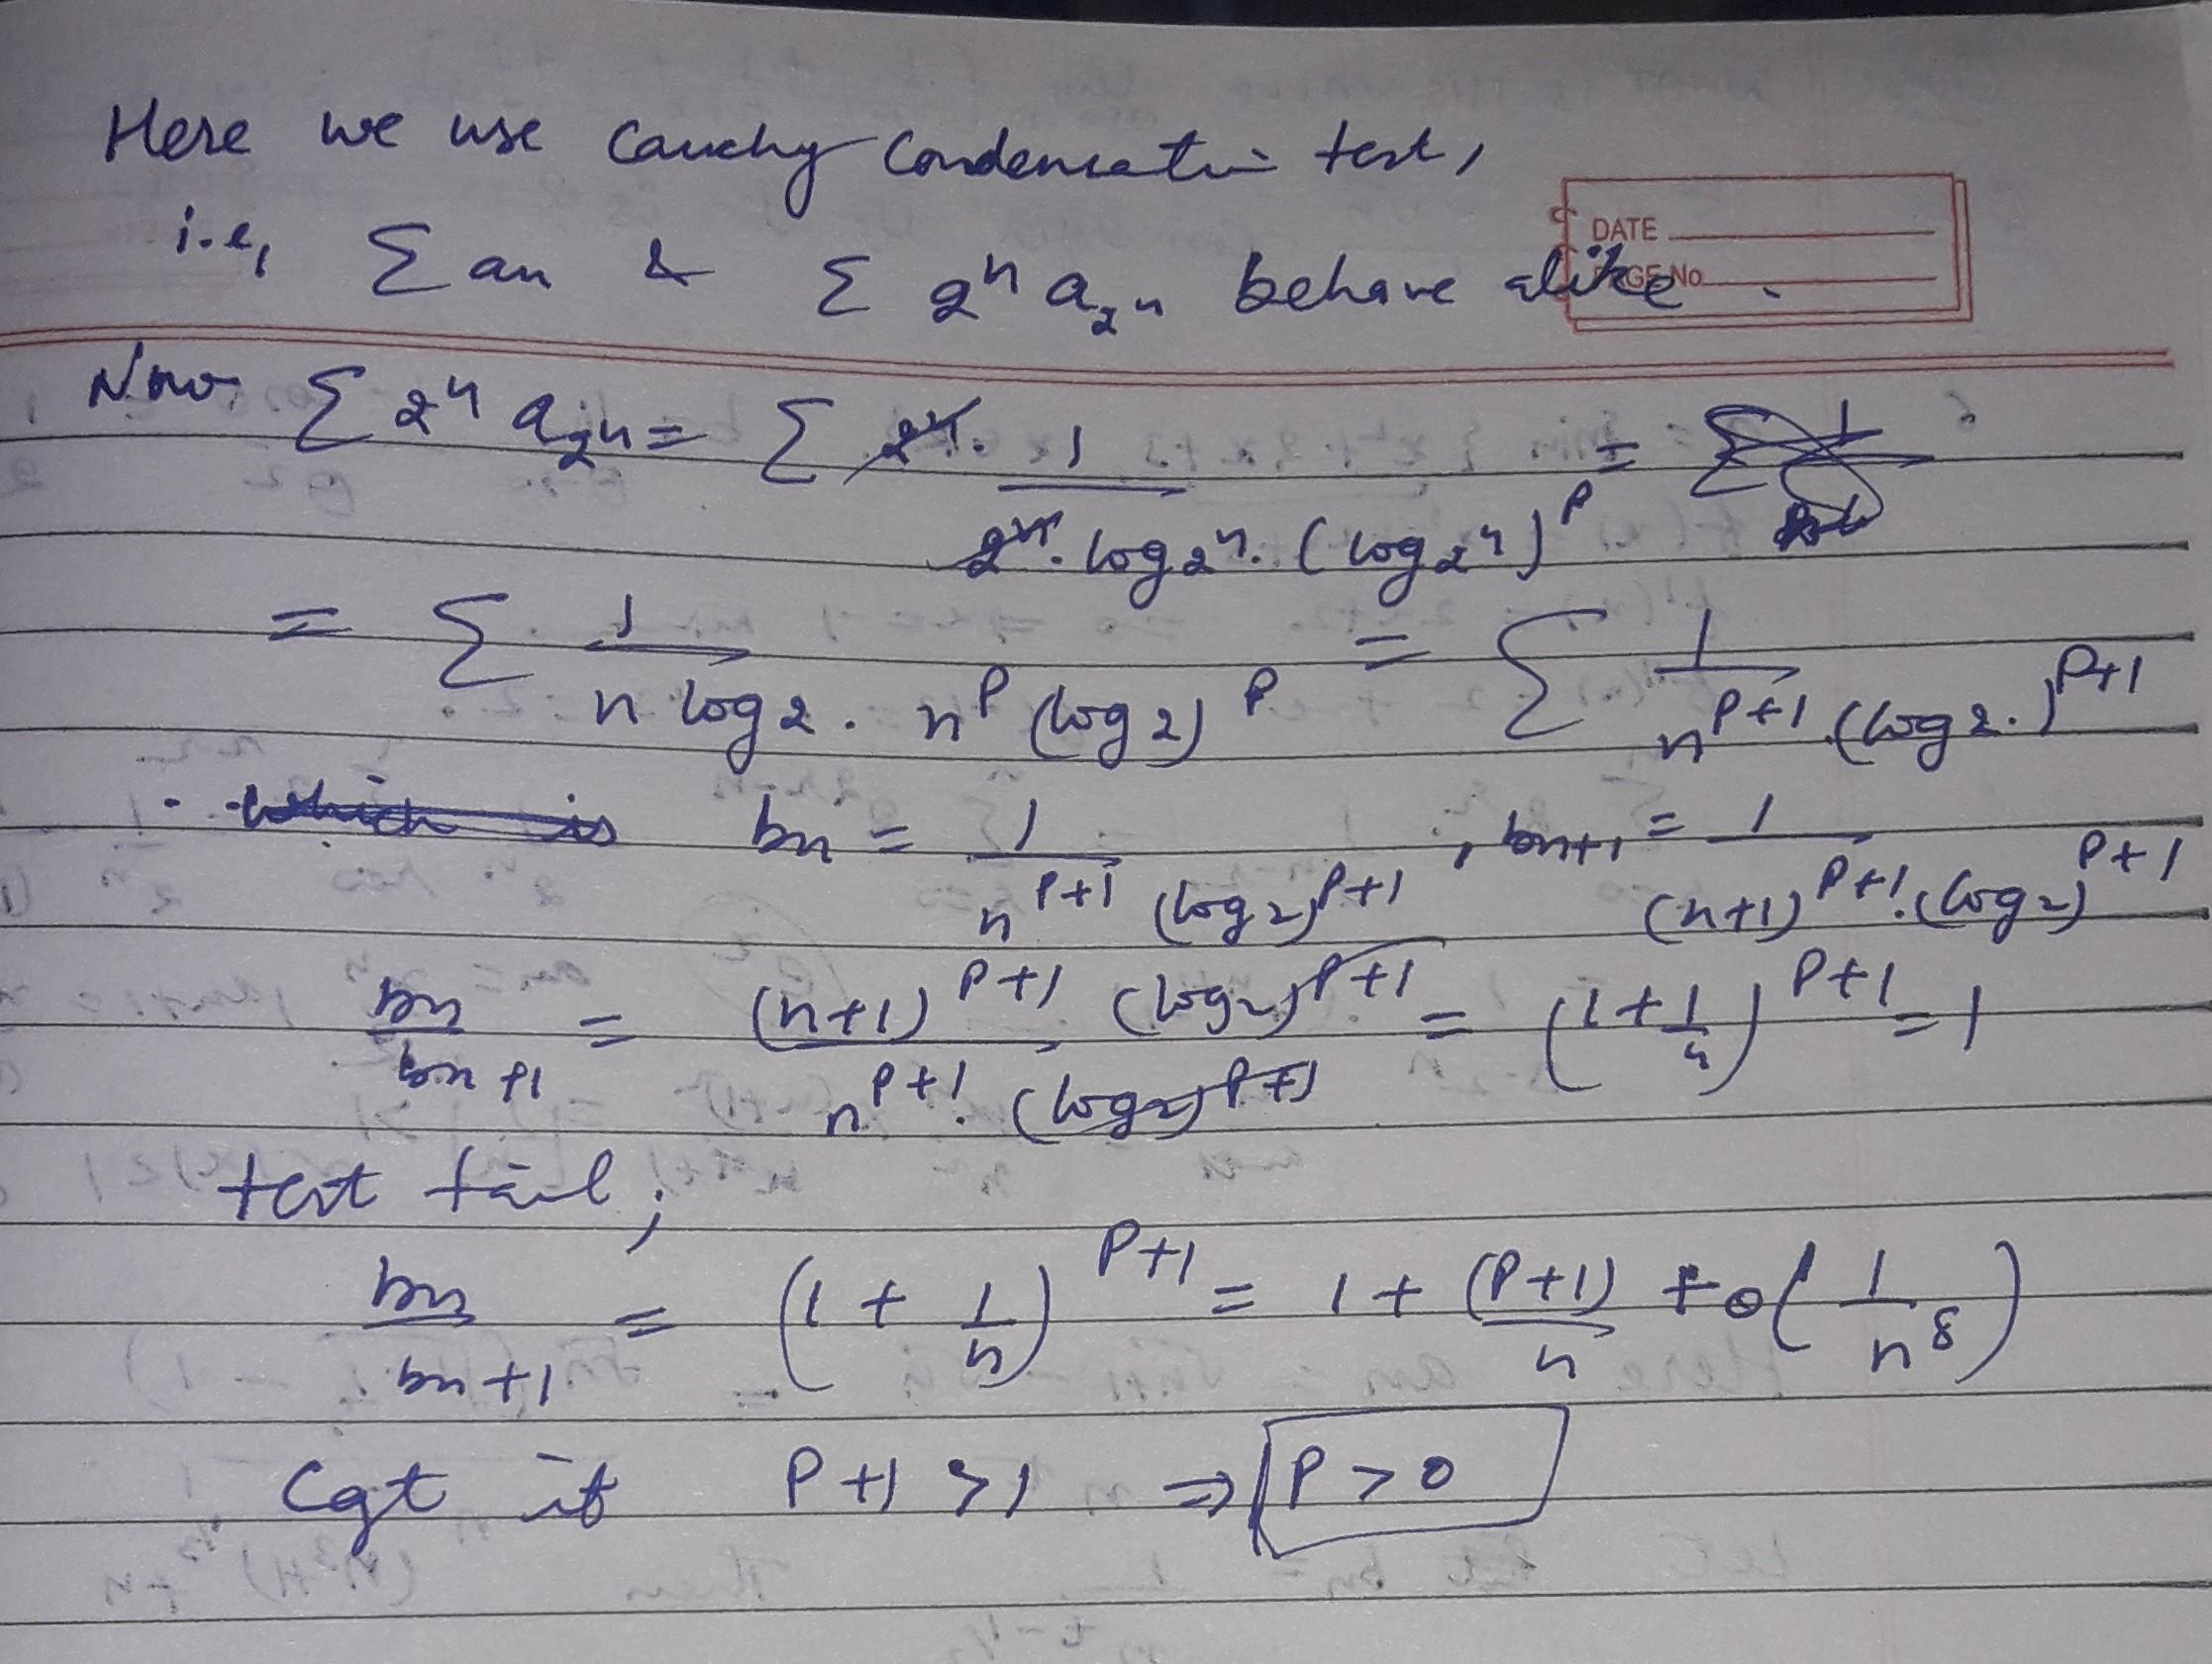 Here we use Cauchy Condensation test,
DATE
PAGE No.
i.e, Σ an & Σ 2^n a_2^n behave alike.
Now Σ 2^n a_2^n = Σ 2^n. 1 / 2^n. log 2^n. (log 2^n)^P =
= Σ 1 / n log 2. n^P (log 2)^P = Σ 1 / n^P+1 (log 2.)^P+1
which is bn = 1 / n^P+1 (log 2)^P+1 , bn+1 = 1 / (n+1)^P+1. (log 2)^P+1
bn / bn+1 = (n+1)^P+1 (log 2)^P+1 / n^P+1. (log 2)^P+1 = (1 + 1/n)^P+1 = 1
test fail;
bn / bn+1 = (1 + 1/n)^P+1 = 1 + (P+1)/n + o(1/n^8)
Cgt if P+1 > 1 ⇒ P > 0